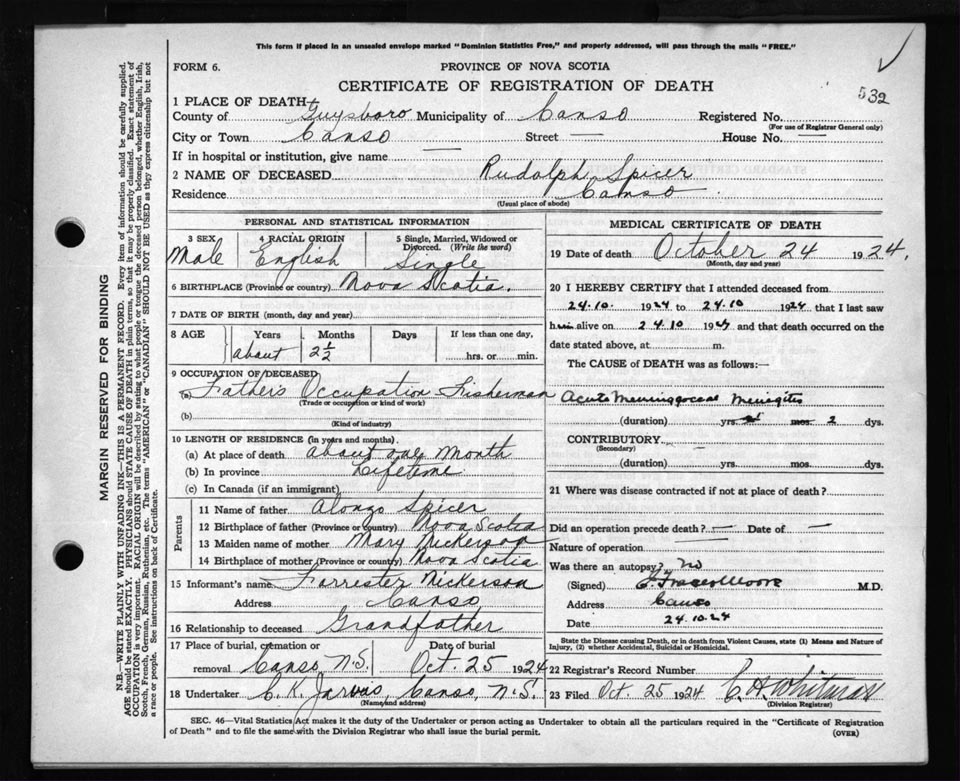 This form if placed in an unsealed envelope marked "Dominion Statistics Free," and properly addressed, will pass through the mails "FREE."
FORM 6.
PROVINCE OF NOVA SCOTIA
CERTIFICATE OF REGISTRATION OF DEATH
532
1 PLACE OF DEATH
County of Guysboro Municipality of Canso Registered No.
(For use of Registrar General only)
City or Town Canso Street — House No. —
If in hospital or institution, give name —
2 NAME OF DECEASED Rudolph Spicer
Residence Canso
(Usual place of abode)
PERSONAL AND STATISTICAL INFORMATION
3 SEX Male
4 RACIAL ORIGIN English
5 Single, Married, Widowed or Divorced. (Write the word) Single
6 BIRTHPLACE (Province or country) Nova Scotia.
7 DATE OF BIRTH (month, day and year)
8 AGE Years Months Days If less than one day,
about 2½ hrs. or min.
9 OCCUPATION OF DECEASED
(a) Father's Occupation Fisherman
(Trade or occupation or kind of work)
(b)
(Kind of industry)
10 LENGTH OF RESIDENCE (in years and months)
(a) At place of death about one month
(b) In province Lifetime
(c) In Canada (if an immigrant)
Parents
11 Name of father Alonzo Spicer
12 Birthplace of father (Province or country) Nova Scotia
13 Maiden name of mother Mary Nickerson
14 Birthplace of mother (Province or country) Nova Scotia
15 Informant's name Forrester Nickerson
Address Canso
16 Relationship to deceased Grandfather
17 Place of burial, cremation or removal Canso N.S. Date of burial Oct. 25 1924
18 Undertaker C. K. Jarvis, Canso, N.S.
(Name and address)
MEDICAL CERTIFICATE OF DEATH
19 Date of death October 24 1924.
(Month, day and year)
20 I HEREBY CERTIFY that I attended deceased from
24.10. 1924 to 24.10 1924 that I last saw
him alive on 24.10 1924 and that death occurred on the
date stated above, at m.
The CAUSE of DEATH was as follows:—
Acute Meningococcal Meningitis
(duration) yrs. mos. 2 dys.
CONTRIBUTORY —
(Secondary)
(duration) yrs. mos. dys.
21 Where was disease contracted if not at place of death?
Did an operation precede death? — Date of —
Nature of operation —
Was there an autopsy? No
(Signed) Moore M.D.
Address Canso
Date 24.10.24
State the Disease causing Death, or in death from Violent Causes, state (1) Means and Nature of
Injury, (2) whether Accidental, Suicidal or Homicidal.
22 Registrar's Record Number
23 Filed Oct. 25 1924 C. A. Whitman
(Division Registrar)
SEC. 46—Vital Statistics Act makes it the duty of the Undertaker or person acting as Undertaker to obtain all the particulars required in the "Certificate of Registration
of Death" and to file the same with the Division Registrar who shall issue the burial permit.
(OVER)
MARGIN RESERVED FOR BINDING
N.B.—WRITE PLAINLY WITH UNFADING INK—THIS IS A PERMANENT RECORD. Every item of information should be carefully supplied.
AGE should be stated EXACTLY. PHYSICIANS should STATE CAUSE OF DEATH in plain terms, so that it may be properly classified. Exact statement of
OCCUPATION is very important. RACIAL ORIGIN will be described by stating to what people or tongue the deceased person belonged, whether English, Irish,
Scotch, French, German, Russian, Ruthenian, etc. The terms "AMERICAN" or "CANADIAN" SHOULD NOT BE USED as they express citizenship but not
a race or people. See instructions on back of Certificate.